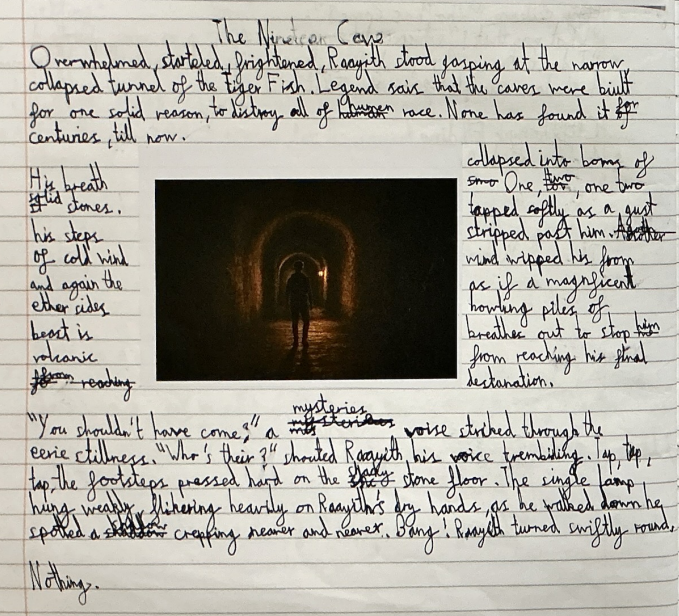 The Nineteen Cave
Overwhelmed, starteled, frightened, Raayith stood gasping at the narrow
collapsed tunnel of the tiger Fish. Legend sais that the caves were built
for one solid reason, to distroy all of human race. None has found it for
centuries, till now.
His breath collapsed into boms of
solid stones. One, two, one two
his steps tapped softly as a gust
of cold wind stripped past him.
and again the wind wipped his from
ether sides as if a magnficent
beast is howling piles of
volcanic breathes out to stop him
from reaching his final
destanation.
"You shouldn't have come?" a mysteries voise striked through the
eerie stillness. "Who's their?" shouted Raayith, his voice trembiling. Tap, tap,
tap, the footsteps pressed hard on the shady stone floor. The single lamp
hung weakly, flikering heavily on Raayith's dry hands, as he walked down he
spotted a shaddow crepping nearer and nearer. Bang! Raayith turned swiftly round,
Nothing.